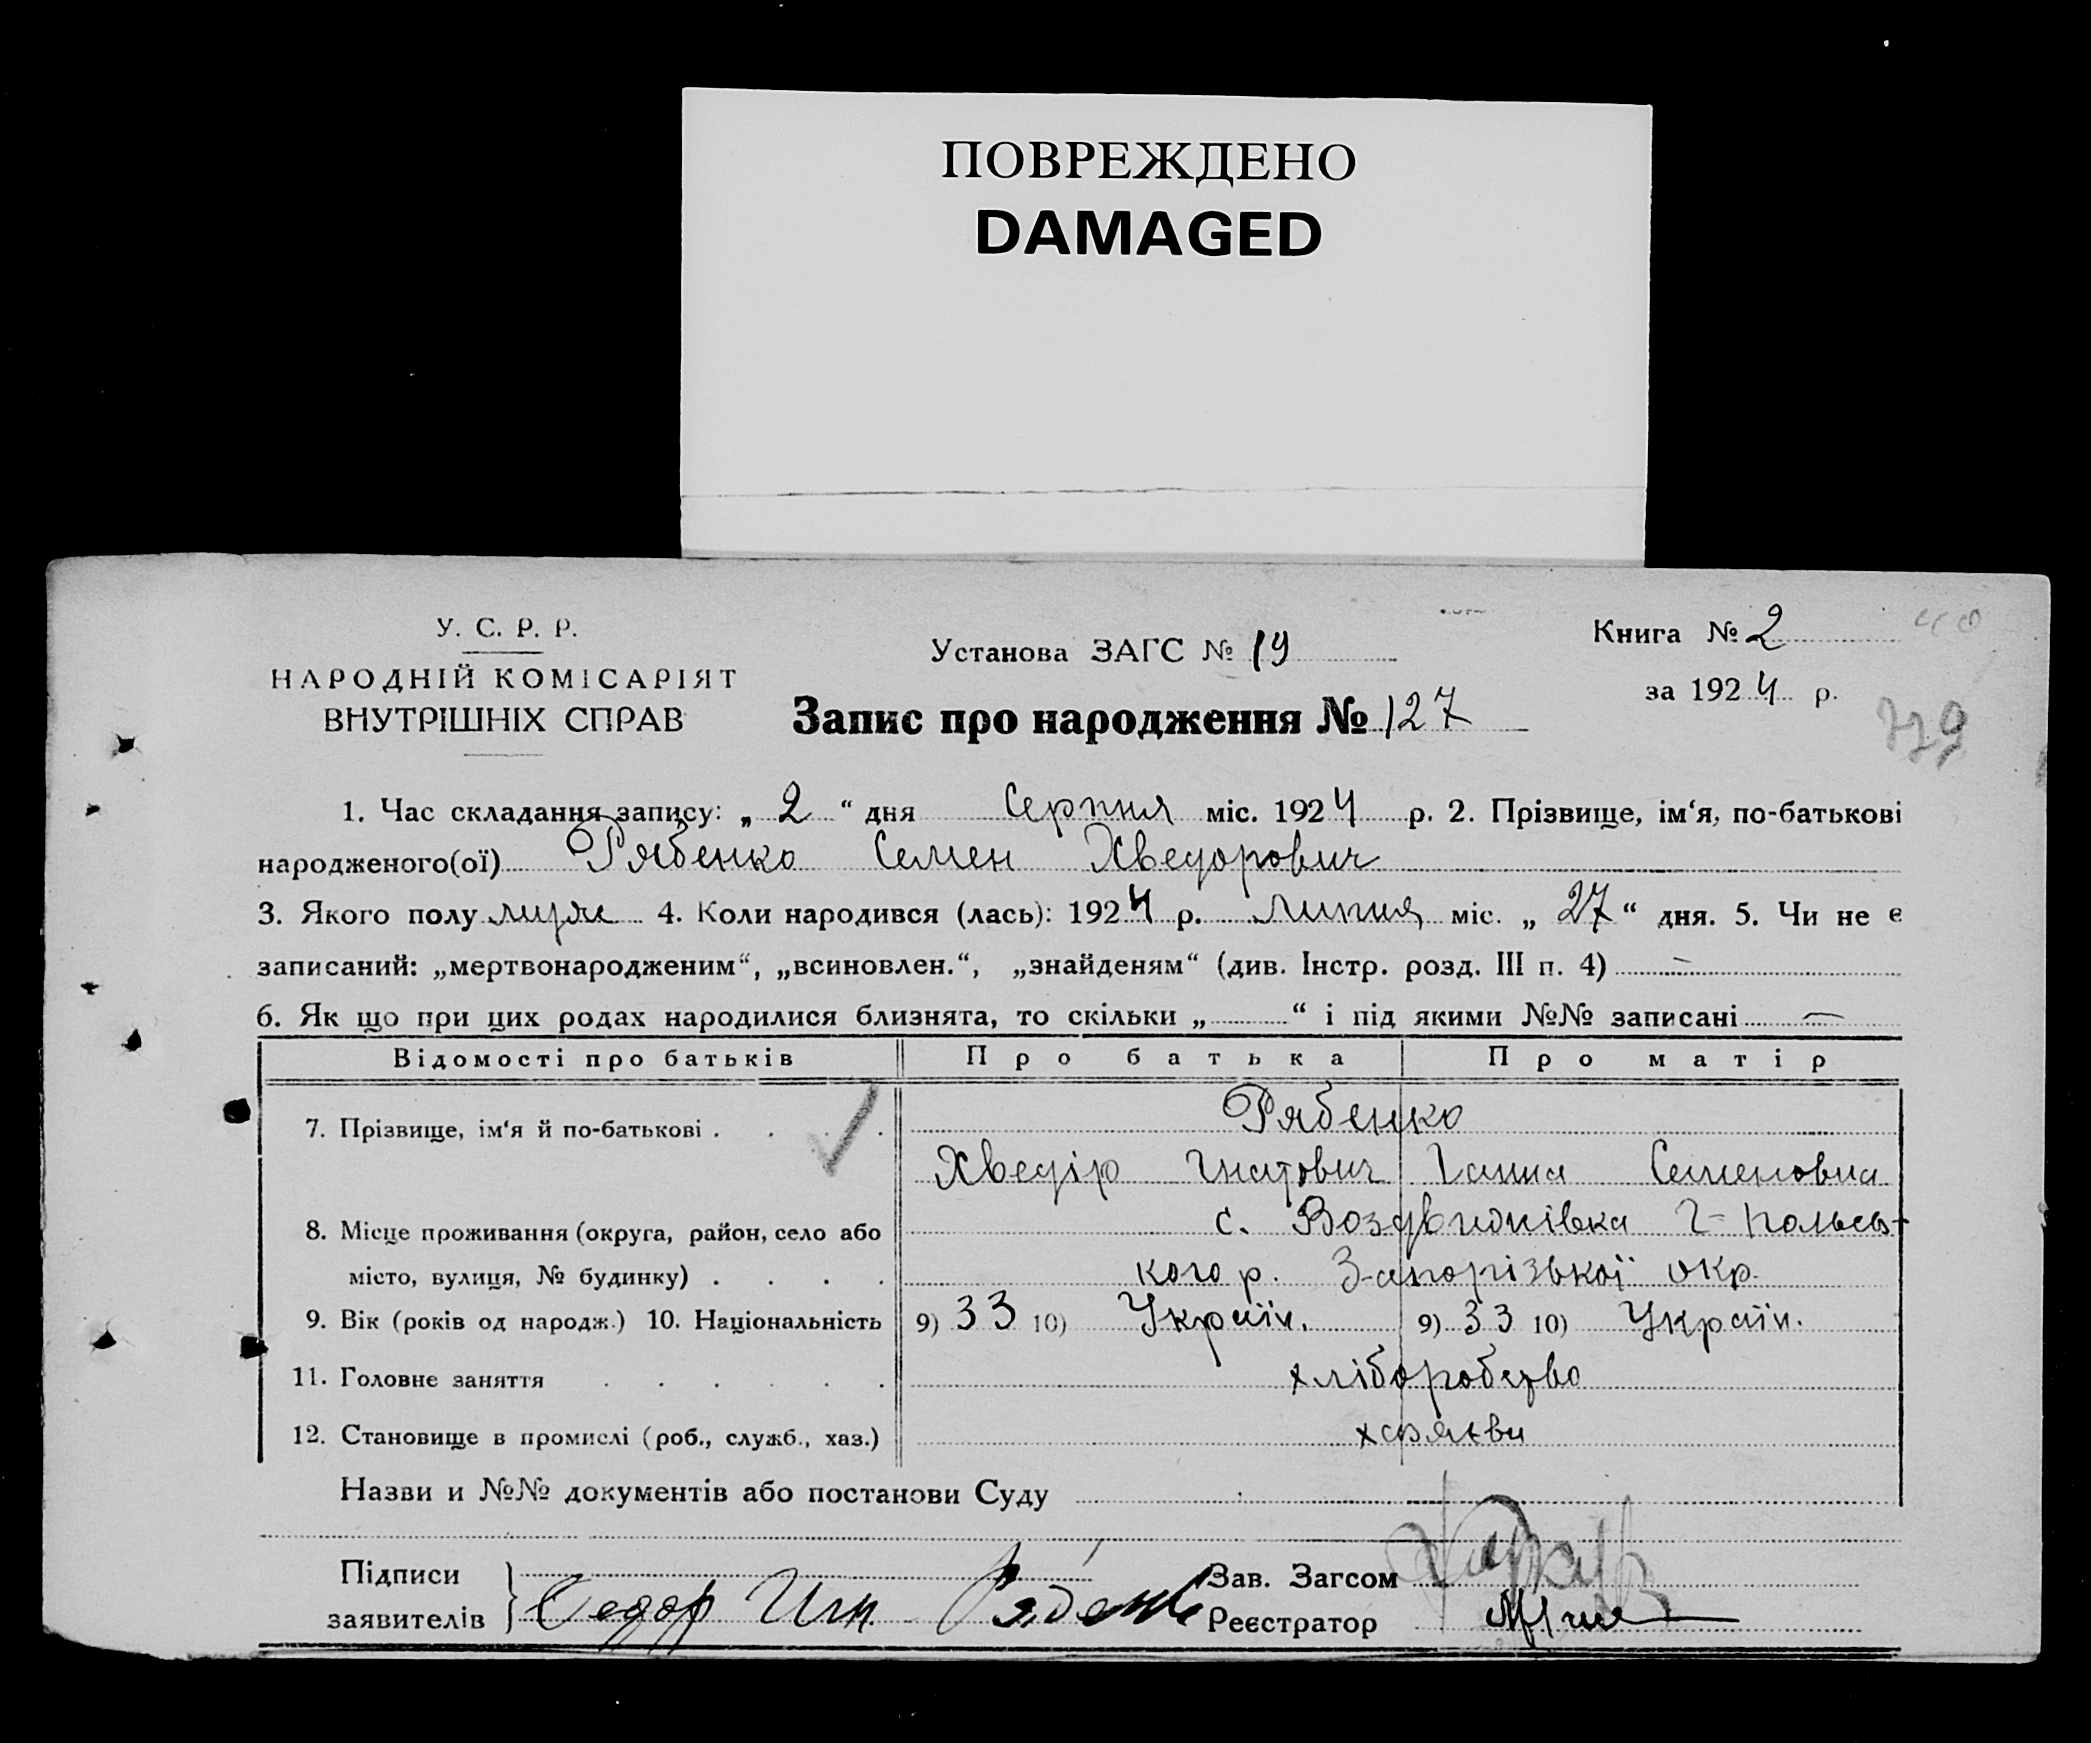 ПОВРЕЖДЕНО
DAMAGED
У. С. Р. Р.
НАРОДНІЙ КОМІСАРІЯТ
ВНУТРІШНІХ СПРАВ
Установа ЗАГС № 19
Запис про народження № 127
Книга № 2
за 1924 р.
1. Час складання запису: „ 2 “ дня Серпня міс. 1924 р. 2. Прізвище, ім‘я, по-батькові
народженого(ої) Рябенко Семен Хведорович
3. Якого полу муж 4. Коли народився (лась): 1924 р. Липня міс. „ 27 “ дня. 5. Чи не є
записаний: „мертвонародженим“, „всиновлен.“, „знайденям“ (див. Інстр. розд. III п. 4) —
6. Як що при цих родах народилися близнята, то скільки „ “ і під якими №№ записані —
Відомості про батьків Про батька Про матір
7. Прізвище, ім‘я й по-батькові . . . . Рябенко
Хведір Гнатович Ганна Семеновна
8. Місце проживання (округа, район, село або с. Воздвижнівка Г-польсь-
місто, вулиця, № будинку) . . . . кого р. Запорізької окр.
9. Вік (років од народж.) 10. Національність 9) 33 10) Україн. 9) 33 10) Україн.
11. Головне заняття . . . . . . хліборобство
12. Становище в промислі (роб., служб., хаз.) хазяєви
Назви и №№ документів або постанови Суду
Підписи
заявителів
Федор Игн. Рябенко
Зав. Загсом
Реєстратор